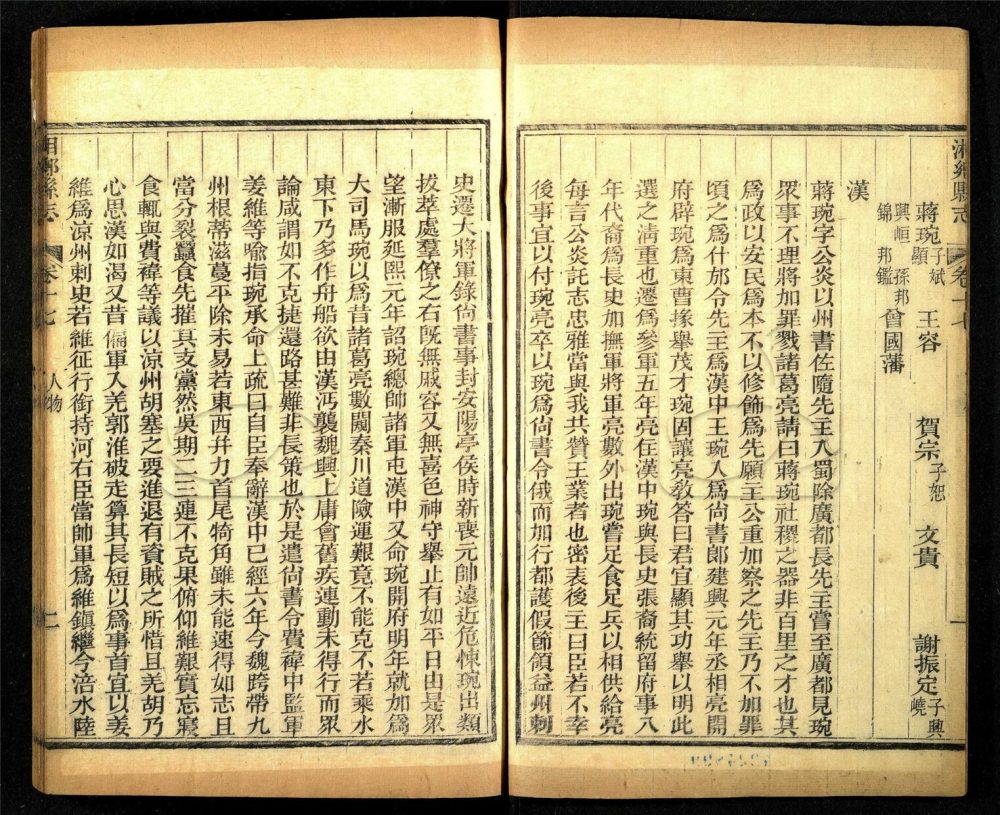 湘鄉縣志 卷十七
蔣琬 子斌 顯 王容 賀宗 子恕 文貴 謝振定 子興嶢
興峘 孫邦鑑 曾國藩
錦 邦
漢
蔣琬字公炎以州書佐隨先主入蜀除廣都長先主嘗至廣都見琬
眾事不理將加罪戮諸葛亮請曰蔣琬社稷之器非百里之才也其
為政以安民為本不以修飾為先願主公重加察之先主乃不加罪
頃之為什邡令先主為漢中王琬入為尙書郎建興元年丞相亮開
府辟琬為東曹掾舉茂才琬固讓亮教答曰君宜顯其功舉以明此
選之清重也遷為參軍五年亮住漢中琬與長史張裔統留府事八
年代裔為長史加撫軍將軍亮數外出琬嘗足食足兵以相供給亮
每言公炎託志忠雅當與我共贊王業者也密表後主曰臣若不幸
後事宜以付琬亮卒以琬為尙書令俄而加行都護假節領益州刺
史遷大將軍錄尙書事封安陽亭侯時新喪元帥遠近危悚琬出類
拔萃處羣僚之右旣無戚容又無喜色神守舉止有如平日由是眾
望漸服延熙元年詔琬總帥諸軍屯漢中又命琬開府明年就加為
大司馬琬以為昔諸葛亮數闚秦川道險運艱竟不能克不若乘水
東下乃多作舟船欲由漢沔襲魏興上庸會舊疾連動未得行而眾
論咸謂如不克捷還路甚難非長策也於是遣尙書令費禕中監軍
姜維等喻指琬承命上疏曰自臣奉辭漢中已經六年今魏跨帶九
州根蒂滋蔓平除未易若東西幷力首尾犄角雖未能速得如志且
當分裂蠶食先摧其支黨然吳期二三連不克果俯仰維艱實忘寢
食輒與費禕等議以涼州胡塞之要進退有資賊之所惜且羌胡乃
心思漢如渴又昔偏軍入羌郭淮破走算其長短以為事首宜以姜
維為涼州刺史若維征行銜持河右臣當帥軍為維鎮繼今涪水陸
湘鄉縣志 卷十七 人物